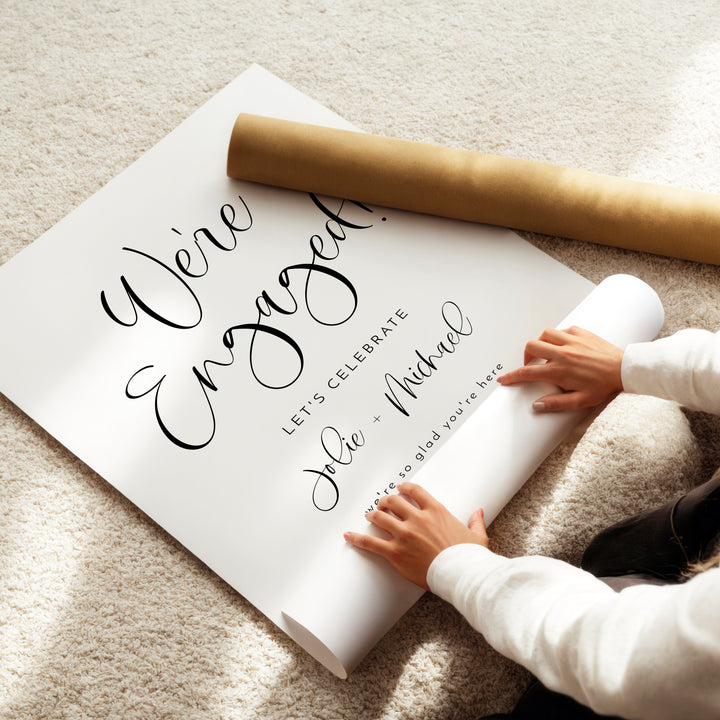 We're
Engaged!
LET'S CELEBRATE
Jolie + Michael
we're so glad you're here